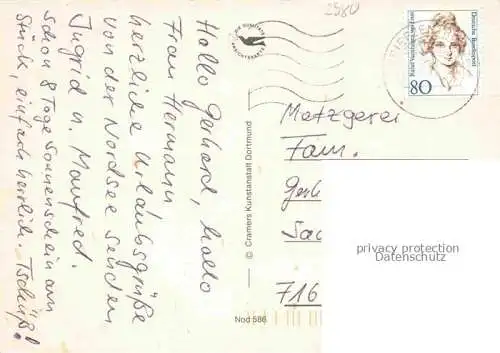 2980
Hallo Gerhard, hallo
Frau Hermann
herzliche Urlaubsgrüße
von der Nordsee senden
Ingrid u. Manfred.
Schon 8 Tage Sonnenschein am
Stück, einfach herrlich. Tschüß!
© Cramers Kunstanstalt Dortmund
Nod 586
Deutsche Bundespost
80
Metzgerei
Fam.
716
privacy protection
Datenschutz